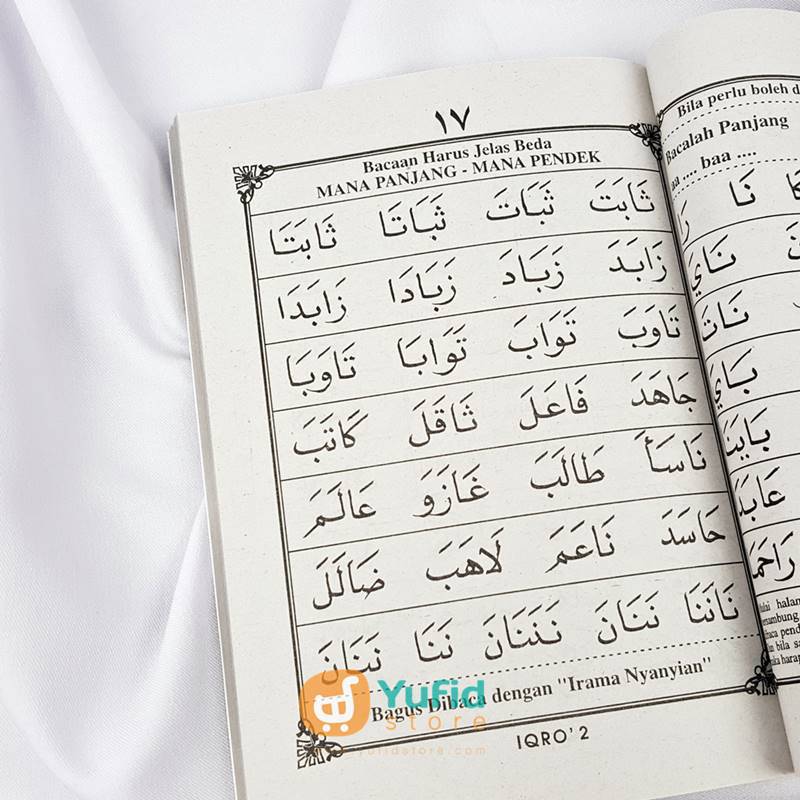 ١٧
Bacaan Harus Jelas Beda
MANA PANJANG - MANA PENDEK
ثَابَتَ ثَبَاتَ ثَبَاتَا ثَابَتَا
زَابَدَ زَبَادَ زَبَادَا زَابَدَا
تَاوَبَ تَوَابَ تَوَابَا تَاوَبَا
جَاهَدَ فَاعَلَ ثَاقَلَ كَاتَبَ
نَاسَأَ طَالَبَ غَازَوَ عَالَمَ
حَاسَدَ نَاعَمَ لَاهَبَ ضَالَلَ
نَانَنَا نَنَانَ نَنَنَانَ نَنَا نَنَنَانَ
Bagus Dibaca dengan "Irama Nyanyian"
IQRO' 2
Bila perlu boleh d
Bacalah Panjang
baa ....
نَا
نَايَ
نَاتَ
بَايَ
عَابَدَ
رَاحَمَ
halam
Yufid
store
yufidstore.com